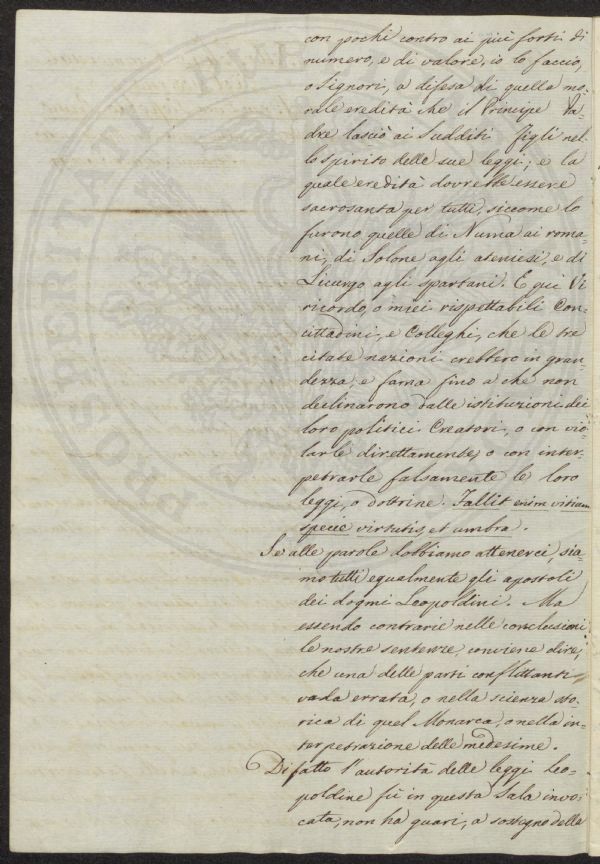 con pochi contro ai più forti di
numero, e di valore, io lo faccio,
o Signori, a difesa di quella mo-
rale eredità che il Principe Pa-
dre lasciò ai Sudditi figli nel-
lo spirito delle sue leggi; e la
quale eredità dovrebbe essere
sacrosanta per tutti, siccome lo
furono quelle di Numa ai roma-
ni, di Solone agli ateniesi, e di
Licurgo agli spartani. E qui Vi
ricordo, o miei rispettabili Con-
cittadini, e Colleghi, che le tre
citate nazioni crebbero in gran-
dezza, e fama fino a che non
declinarono dalle istituzioni dei
loro politici Creatori, o con vio-
larle direttamente, o con inter-
petrarle falsamente le loro
leggi, o dottrine. Fallit enim vitium
specie virtutis, et umbra.
Se alle parole dobbiamo attenerci, sia-
mo tutti egualmente gli apostoli
dei dogmi Leopoldini. Ma
essendo contrarie nelle conclusioni
le nostre sentenze, conviene dire,
che una delle parti conflittanti
vada errata, o nella scienza sto-
rica di quel Monarca, o nella in-
terpetrazione delle medesime.
Di fatto l'autorità delle leggi Leo-
poldine fù in questa Sala invo-
cata, non ha guari, a sostegno della
PROSPERITATI